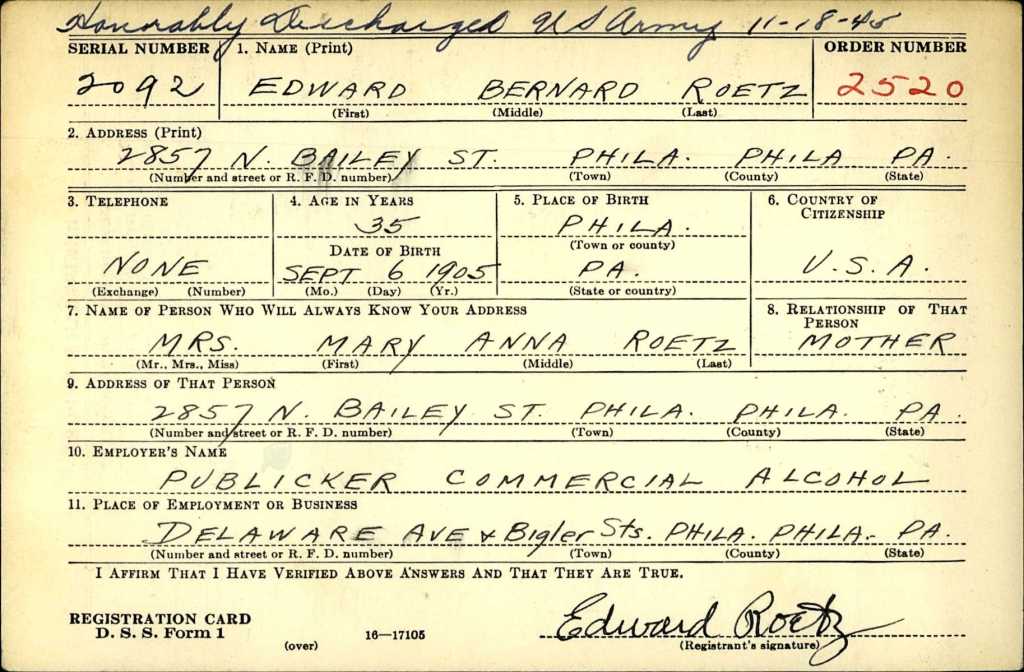 Honorably Discharged US Army 11-18-45
SERIAL NUMBER 1. NAME (Print) ORDER NUMBER
2092 EDWARD BERNARD ROETZ 2520
(First) (Middle) (Last)
2. ADDRESS (Print)
2857 N. BAILEY ST. PHILA. PHILA PA.
(Number and street or R. F. D. number) (Town) (County) (State)
3. TELEPHONE 4. AGE IN YEARS 5. PLACE OF BIRTH 6. COUNTRY OF
CITIZENSHIP
35 PHILA.
DATE OF BIRTH (Town or county)
NONE SEPT 6 1905 PA. U.S.A.
(Exchange) (Number) (Mo.) (Day) (Yr.) (State or country)
7. NAME OF PERSON WHO WILL ALWAYS KNOW YOUR ADDRESS 8. RELATIONSHIP OF THAT
PERSON
MRS. MARY ANNA ROETZ MOTHER
(Mr., Mrs., Miss) (First) (Middle) (Last)
9. ADDRESS OF THAT PERSON
2857 N. BAILEY ST. PHILA. PHILA. PA.
(Number and street or R. F. D. number) (Town) (County) (State)
10. EMPLOYER'S NAME
PUBLICKER COMMERCIAL ALCOHOL
11. PLACE OF EMPLOYMENT OR BUSINESS
DELAWARE AVE & Bigler Sts. PHILA. PHILA. PA.
(Number and street or R. F. D. number) (Town) (County) (State)
I AFFIRM THAT I HAVE VERIFIED ABOVE ANSWERS AND THAT THEY ARE TRUE.
REGISTRATION CARD
D. S. S. Form 1 16—17105 Edward Roetz
(over) (Registrant's signature)